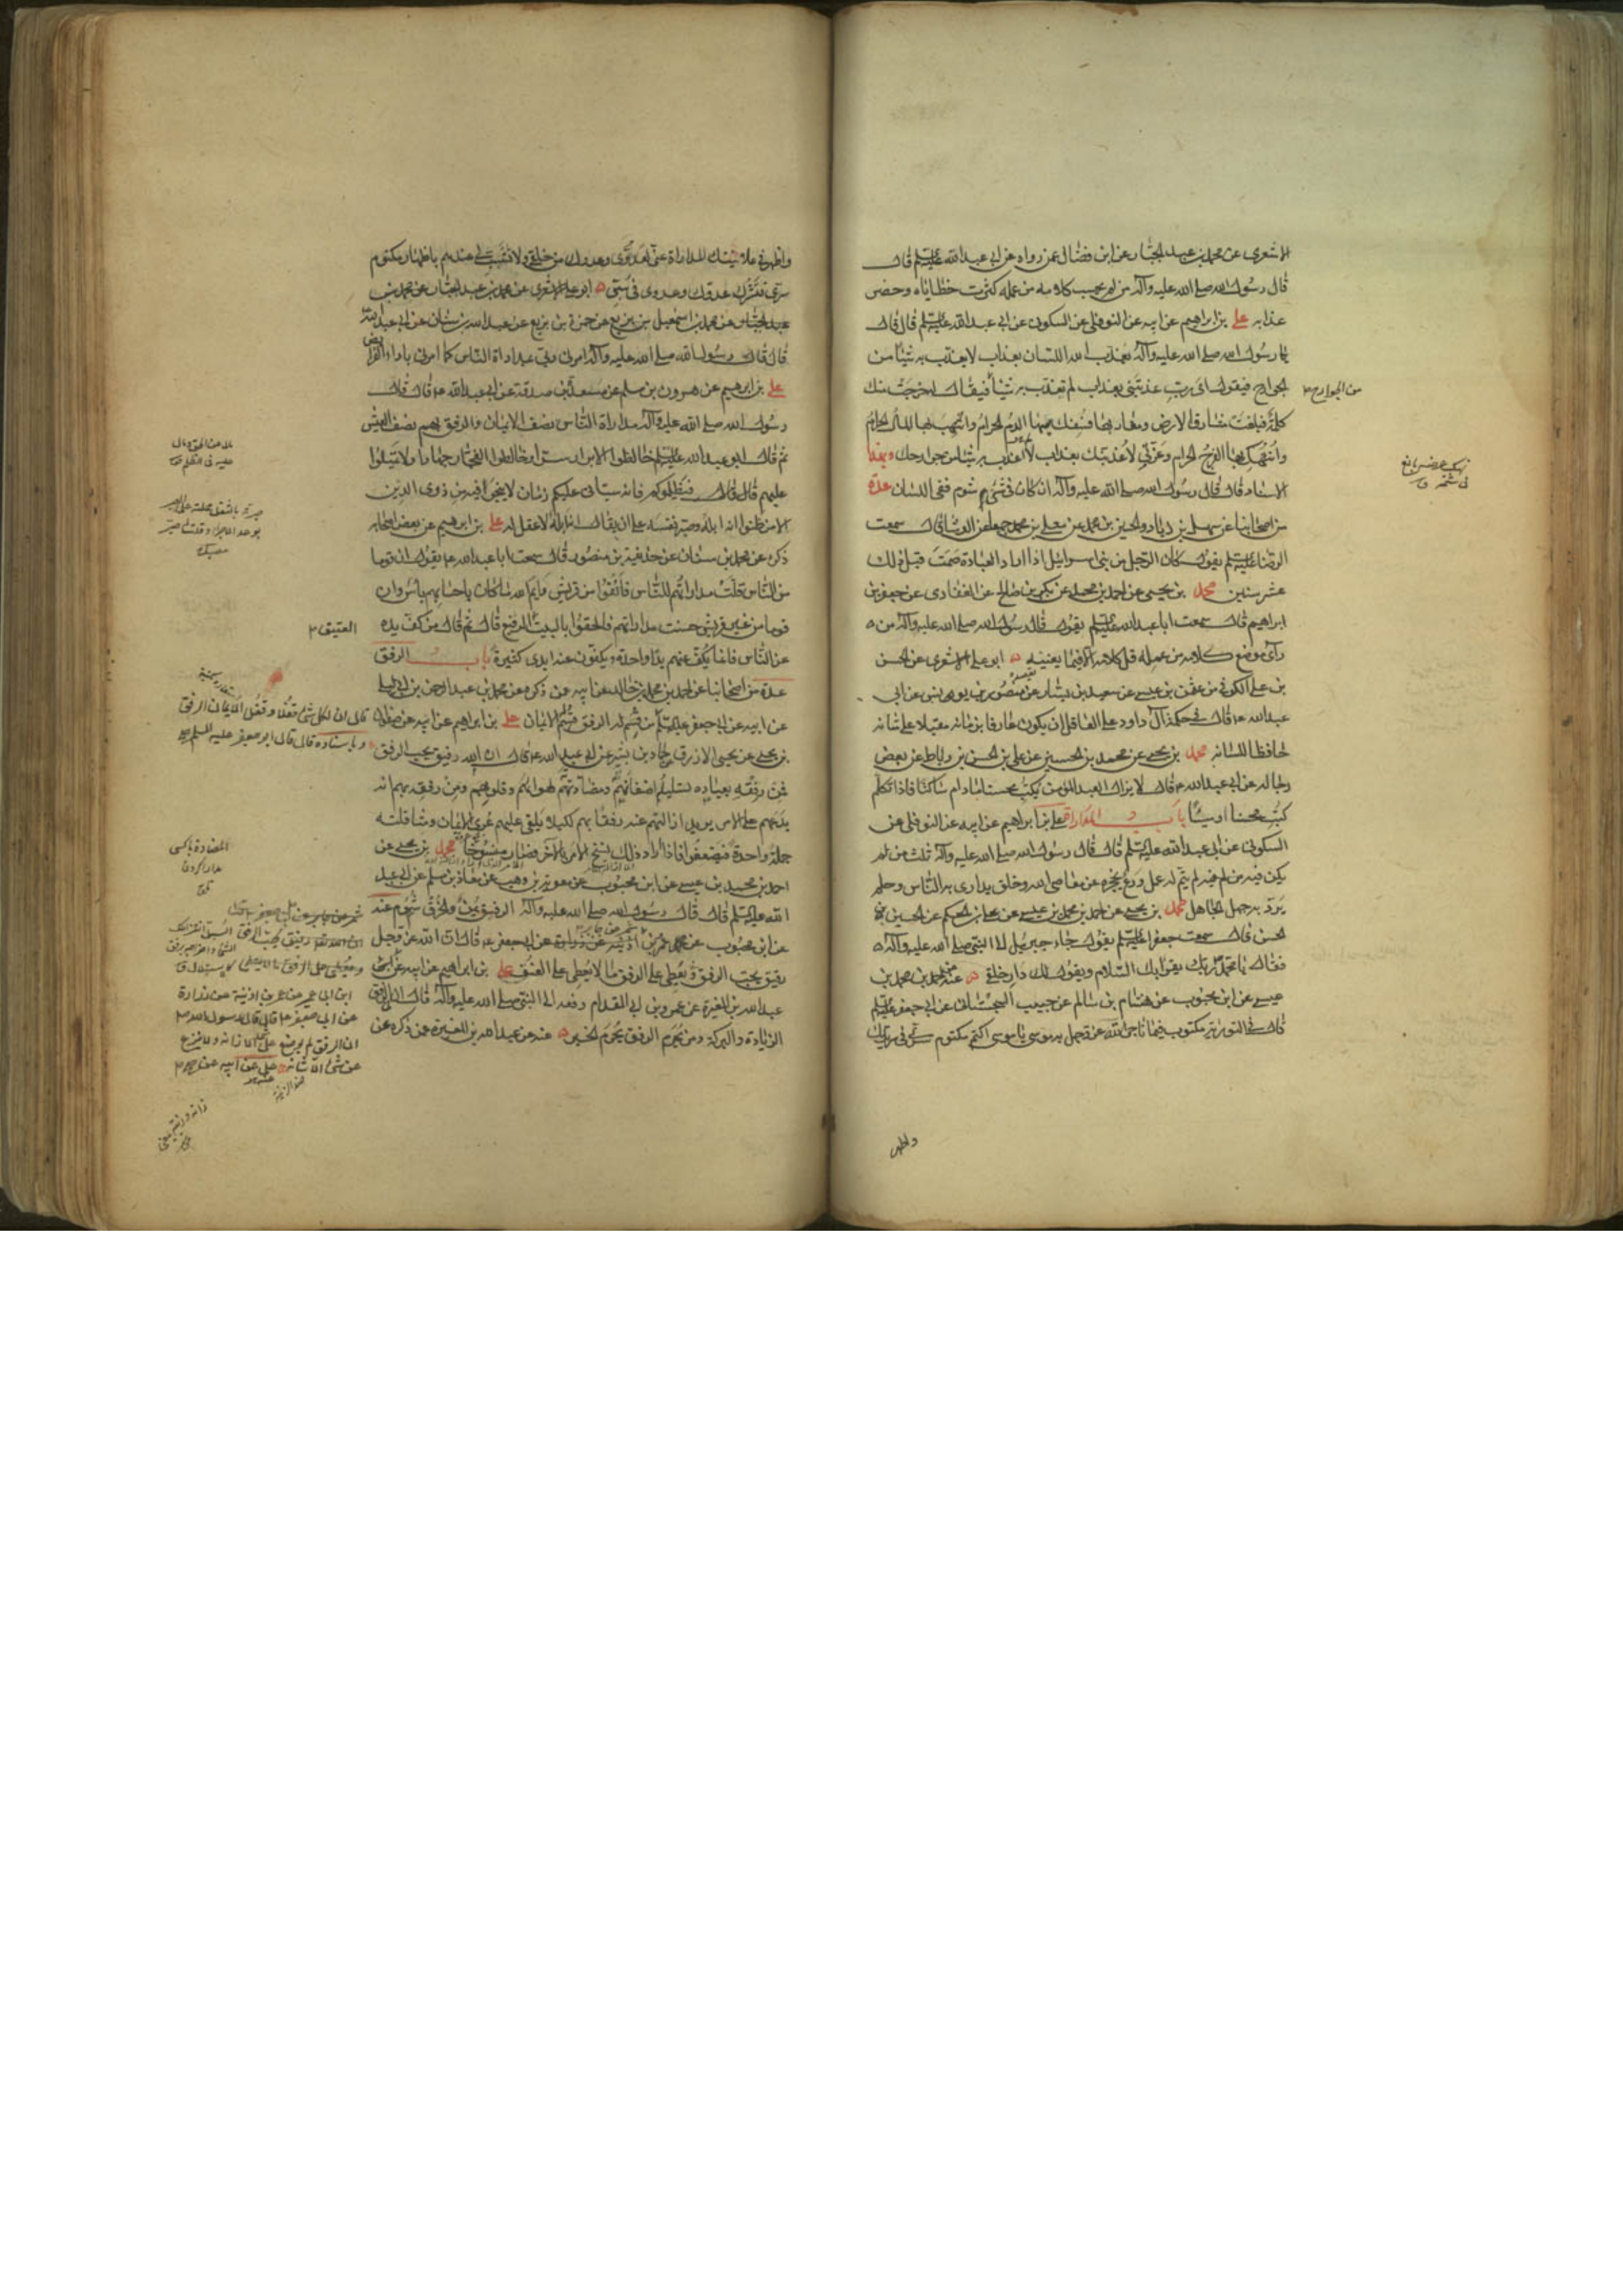 الاشعرى عن محمد بن عبد الجبار عن ابن فضال عمن رواه عن ابى عبدالله عليه السلم قال
قال رسول الله صلى الله عليه وآله من لم يحسب كلامه من عمله كثرت خطاياه وحضر
عذابه على بن ابراهيم عن ابيه عن النوفلى عن السكونى عن ابى عبدالله عليه السلم قال قال
رسول الله صلى الله عليه وآله يعذب الله اللسان بعذاب لا يعذب به شيئا من
الجوارح فيقول اى رب عذبتنى بعذاب لم تعذب به شيئا فيقال له خرجت منك
من الجوارح
كلمة فبلغت مشارق الارض ومغاربها فسفك بها الدم الحرام وانتهب بها المال الحرام
وانتهك بها الفرج الحرام وعزتى لاعذبنك بعذاب لا اعذب به شيئا من جوارحك وبهذا
الاسناد قال قال رسول الله صلى الله عليه وآله ان كان فى شىء شوم ففى اللسان عدة
من اصحابنا عن سهل بن زياد والحسين بن محمد عن معلى بن محمد جميعا عن الوشا قال سمعت
الرضا عليه السلم يقول كان الرجل من بنى اسرائيل اذا اراد العبادة صمت قبل ذلك
عشر سنين محمد بن يحيى عن احمد بن محمد عن بكر بن صالح عن الغفارى عن جعفر بن
ابراهيم قال سمعت ابا عبدالله عليه السلم يقول قال رسول الله صلى الله عليه وآله من
رآى موضع كلامه من عمله قل كلامه الا فيما يعنيه ابو على الاشعرى عن الحسن
بن على الكوفى عن عثمن بن عيسى عن سعيد بن يسار عن منصور بن يونس عن ابى
عبدالله ع قال فى حكمة آل داود على العاقل ان يكون عارفا بزمانه مقبلا على شانه
حافظا للسانه محمد بن يحيى عن محمد بن الحسين عن على بن الحسن بن رباط عن بعض
رجاله عن ابى عبدالله ع قال لا يزال العبد المؤمن يكتب محسنا ما دام ساكتا فاذا تكلم
كتب محسنا او مسيئا باب المداراة على بن ابراهيم عن ابيه عن النوفلى عن
السكونى عن ابى عبدالله عليه السلم قال قال رسول الله صلى الله عليه وآله ثلث من لم
يكن فيه لم يتم له عمل ورع يحجزه عن معاصى الله وخلق يدارى به الناس وحلم
يرد به جهل الجاهل محمد بن يحيى عن احمد بن محمد بن عيسى عن على بن الحكم عن الحسين بن
الحسن قال سمعت جعفرا عليه السلم يقول جاء جبرئيل الى النبى صلى الله عليه وآله
فقال يا محمد ربك يقرئك السلام ويقول لك دار خلقى عنه عن احمد بن محمد بن
عيسى عن ابن محبوب عن هشام بن سالم عن حبيب السجستانى عن ابى جعفر عليه السلم
قال فى التورية مكتوب فيما ناجى الله عز وجل به موسى يا موسى اكتم مكتوم سرى فى سريرتك
واظهر
واظهر فى علانيتك المداراة عنى لعدوى وعدوك من خلقى ولا تستسب لى عندهم باظهار مكتوم
سرى فتشرك عدوك وعدوى فى سبى ابو على الاشعرى عن محمد بن عبد الجبار عن محمد بن
عبد الجبار عن محمد بن اسمعيل بن بزيع عن حمزة بن بزيع عن عبدالله بن سنان عن ابى عبدالله
قال قال رسول الله صلى الله عليه وآله امرنى ربى بمداراة الناس كما امرنى باداء الفرائض
على بن ابرهيم عن هرون بن مسلم عن مسعدة بن صدقة عن ابى عبدالله ع قال قال
رسول الله صلى الله عليه وآله مداراة الناس نصف الايمان والرفق بهم نصف العيش
ثم قال ابو عبدالله عليه السلم خالطوا الابرار سرا وخالطوا الفجار جهارا ولا تميلوا
عليهم فيظلموكم فانه سيأتى عليكم زمان لا ينجو فيه من ذوى الدين
الا من ظنوا انه ابله وصبر نفسه على ان يقال انه ابله لا عقل له على بن ابرهيم عن بعض اصحابه
ذكره عن محمد بن سنان عن حذيفة بن منصور قال سمعت ابا عبدالله ع يقول ان قوما
من الناس قلت مداراتهم للناس فانفوا من قريش وايم الله ما كان باحسابهم باس وان
قوما من غير قريش حسنت مداراتهم فالحقوا بالبيت الرفيع قال ثم قال من كف يده
عن الناس فانما يكف عنهم يدا واحدة ويكفون عنه ايدى كثيرة باب الرفق
عدة من اصحابنا عن احمد بن محمد بن خالد عن ابيه عن ذكره عن محمد بن عبد الرحمن بن ابى ليلى
عن ابيه عن ابى جعفر عليه السلم من قسم له الرفق قسم له الايمان على بن ابراهيم عن ابيه عن صفوان
بن يحيى عن يحيى الازرق عن حماد بن بشير عن ابى عبدالله ع قال ان الله رفيق يحب الرفق
فمن رفقه بعباده تسليله اضغانهم ومضادتهم لهواهم وقلوبهم ومن رفقه بهم انه
يدعهم على الامر يريد ازالتهم عنه رفقا بهم لكيلا يلقى عليهم عرى الايمان ومثاقلته
جملة واحدة فيضعفوا فاذا اراد ذلك نسخ الامر بالآخر فصار منسوخا محمد بن يحيى عن
احمد بن محمد بن عيسى عن ابن محبوب عن معوية بن وهب عن معاذ بن مسلم عن ابى عبد
الله عليه السلم قال قال رسول الله صلى الله عليه وآله الرفق يمن والخرق شوم عنه
عن ابن محبوب عن عمر بن اذينة عن زرارة عن ابى جعفر ع قال ان الله عز وجل
رفيق يحب الرفق ويعطى على الرفق ما لا يعطى على العنف على بن ابراهيم عن ابيه عن
عبدالله بن المغيرة عن عمرو بن ابى المقدام رفعه الى النبى صلى الله عليه وآله قال ان فى الرفق
الزيادة والبركة ومن يحرم الرفق يحرم الخير عنه عن عبدالله بن المغيرة عمن ذكره عن
العتيق
قال ان لكل شىء قفلا وقفل الايمان الرفق
وباسناده قال قال ابو جعفر عليه السلم
ابن ابى عمير عن عمر بن اذينة عن زرارة
عن ابى جعفر ع قال قال رسول الله
ان الرفق لم يوضع على شىء الا زانه ولا ينزع
عن شىء الا شانه على عن ابيه عن